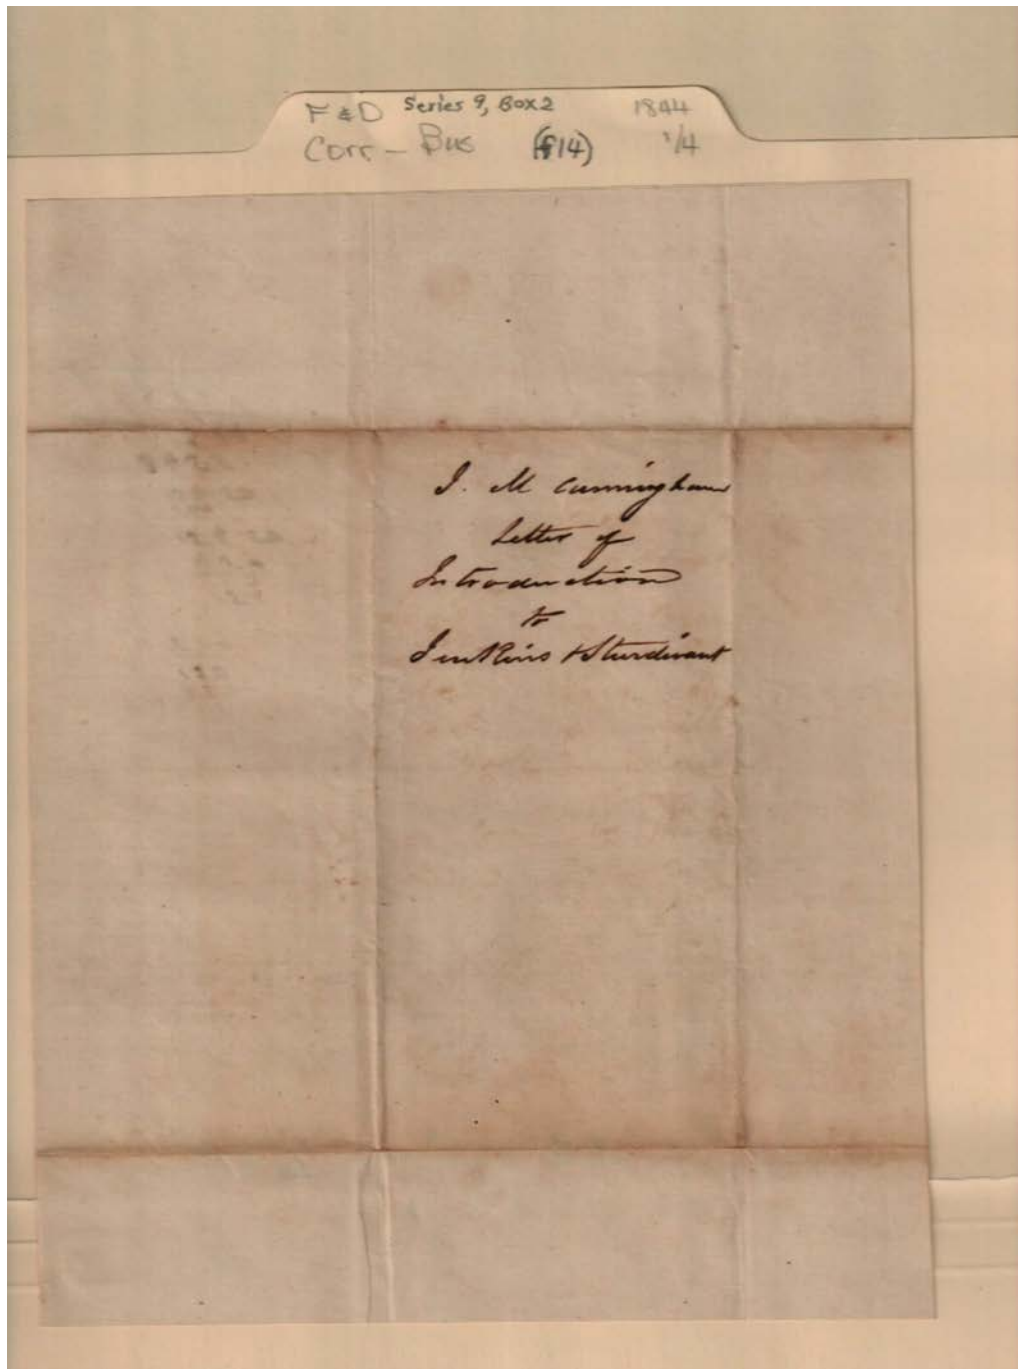 F & D Series 9, Box 2 1844
Corr - Bus (f14) 1/4
J. M Cunningham
Letter of
Introduction
to
Jenkins & Sturdivant